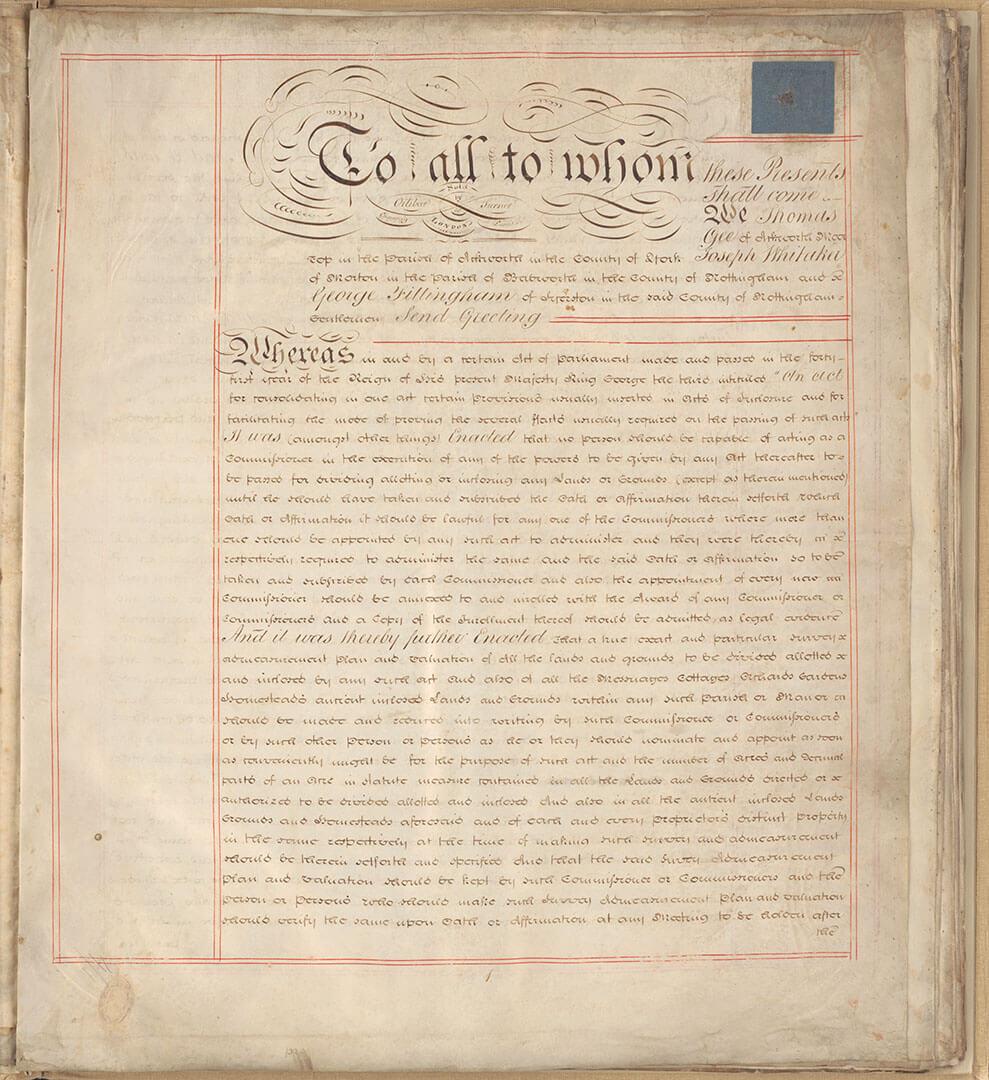 To all to whom these Presents
shall come
Sold
by
Turner
LONDON
We Thomas
Gee of Ackworth Moor
Top in the Parish of Ackworth in the County of York Joseph Whitaker
of Morton in the Parish of Babworth in the County of Nottingham and
George Fillingham of in the said County of Nottingham
Gentlemen Send Greeting
Whereas in and by a certain Act of Parliament made and passed in the forty-
first year of the Reign of His present Majesty King George the third intituled "An act
for consolidating in one act certain Provisions usually inserted in Acts of Inclosure and for
facilitating the mode of proving the several Facts usually required on the passing of such acts
It was (amongst other things) Enacted that no person should be capable of acting as a
Commissioner in the execution of any of the powers to be given by any Act thereafter to
be passed for dividing allotting or inclosing any Lands or Grounds (except as therein mentioned)
until he should have taken and subscribed the Oath or Affirmation therein setforth which
Oath or Affirmation it should be lawful for any one of the Commissioners where more than
one should be appointed by any such act to administer and they were thereby
respectively required to administer the same and the said Oath or Affirmation so to be
taken and subscribed by each Commissioner and also the appointment of every new
Commissioner should be annexed to and inrolled with the Award of any Commissioner or
Commissioners and a Copy of the Inrollment thereof should be admitted as legal evidence
And it was thereby further Enacted That a true exact and particular survey
admeasurement plan and valuation of all the lands and grounds to be divided allotted
and inclosed by any such act And also of all the Messuages Cottages Orchards Gardens
Homesteads antient inclosed Lands and Grounds within any such Parish or Manor
should be made and reduced into writing by such Commissioner or Commissioners
or by such other Person or Persons as he or they should nominate and appoint as soon
as conveniently might be for the purpose of such act and the number of Acres and Decimal
parts of an Acre in statute measure contained in all the Lands and Grounds directed or
authorized to be divided allotted and inclosed And also in all the antient inclosed Lands
Grounds and Homesteads aforesaid and of each and every proprietors distinct property
in the same respectively at the time of making such survey and admeasurement
should be therein setforth and specified And that the said Survey Admeasurement
Plan and Valuation should be kept by such Commissioner or Commissioners and the
Person or Persons who should make such Survey Admeasurement Plan and Valuation
should verify the same upon Oath or Affirmation at any Meeting to be holden after
the
1